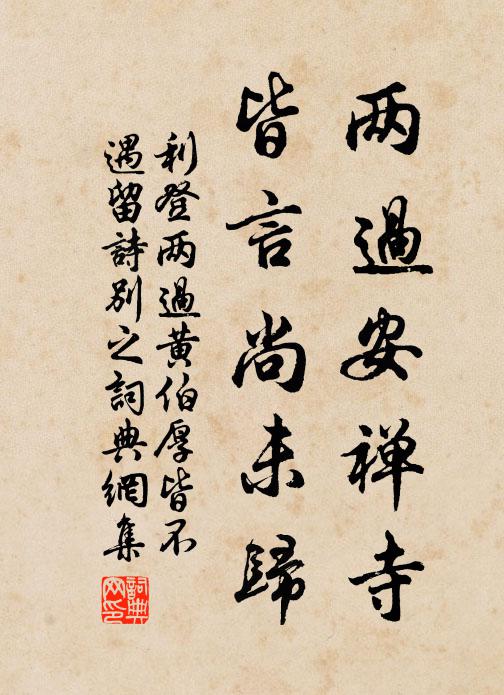 两過安禅寺
皆言尚未歸
利登两過黄伯厚皆不
遇留詩别之詞典網集
詞典網印